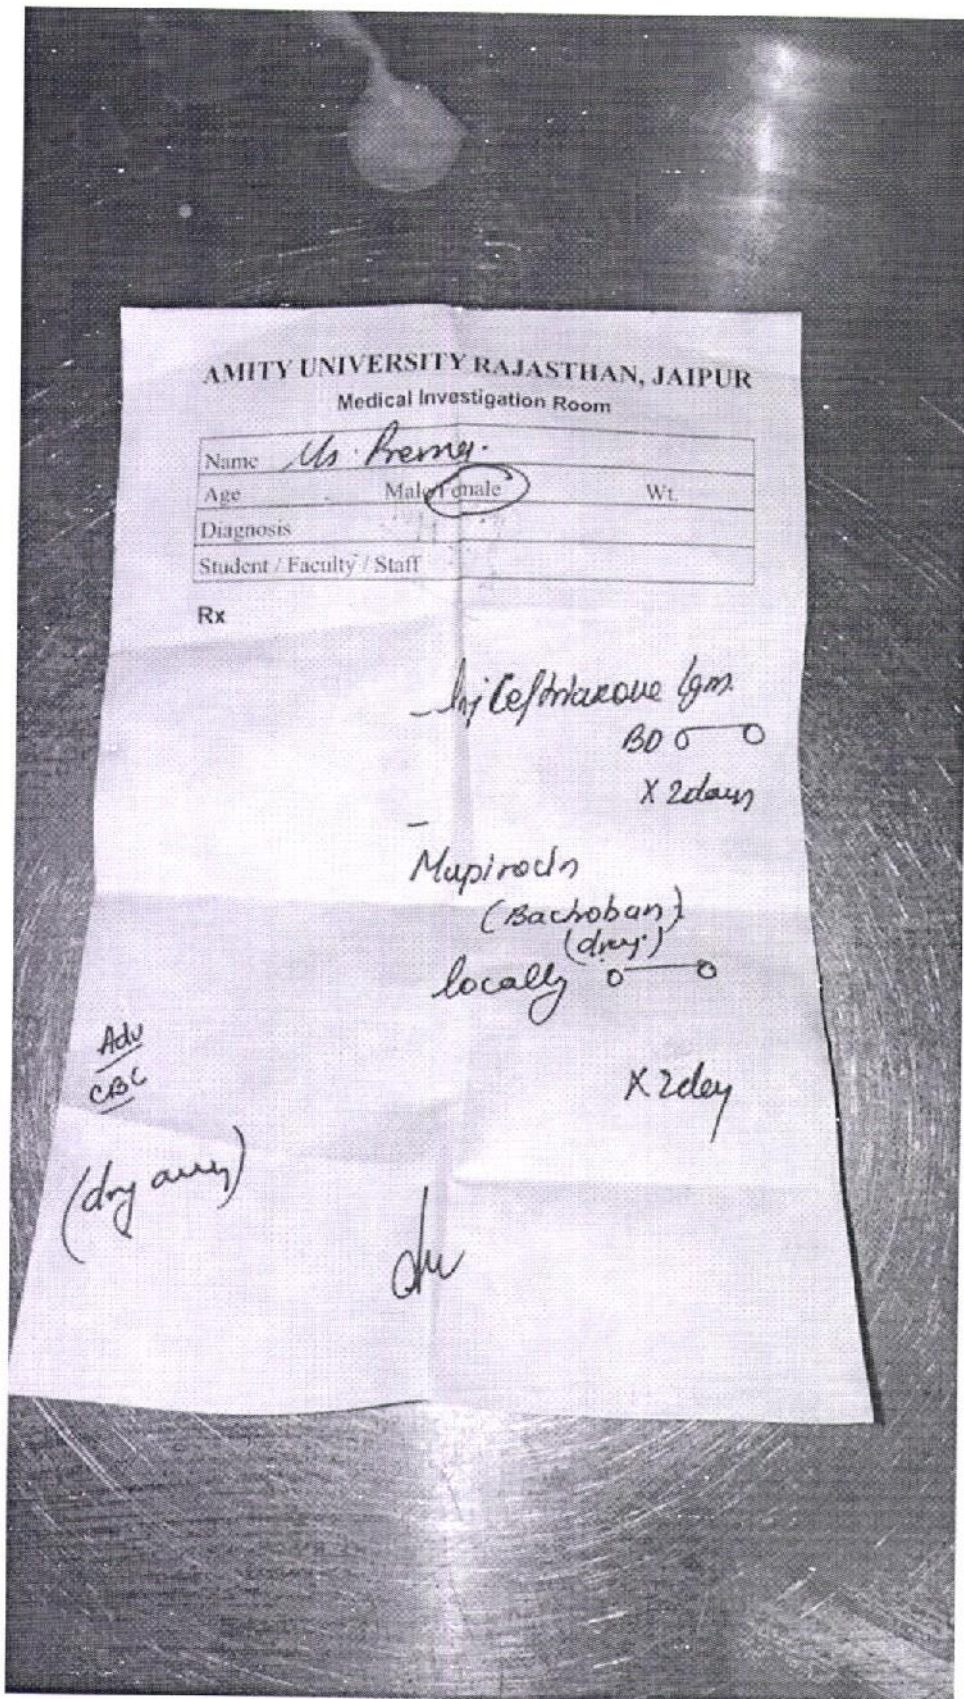 AMITY UNIVERSITY RAJASTHAN, JAIPUR
Medical Investigation Room
Name Ms. Prerna.
Age Male/Female Wt.
Diagnosis
Student / Faculty / Staff
Rx
- Inj Ceftriaxone 1gm
BD o—o
X 2days
-
Mupirocin
(Bactroban)
locally o—o
X 2day
Adv
CBC